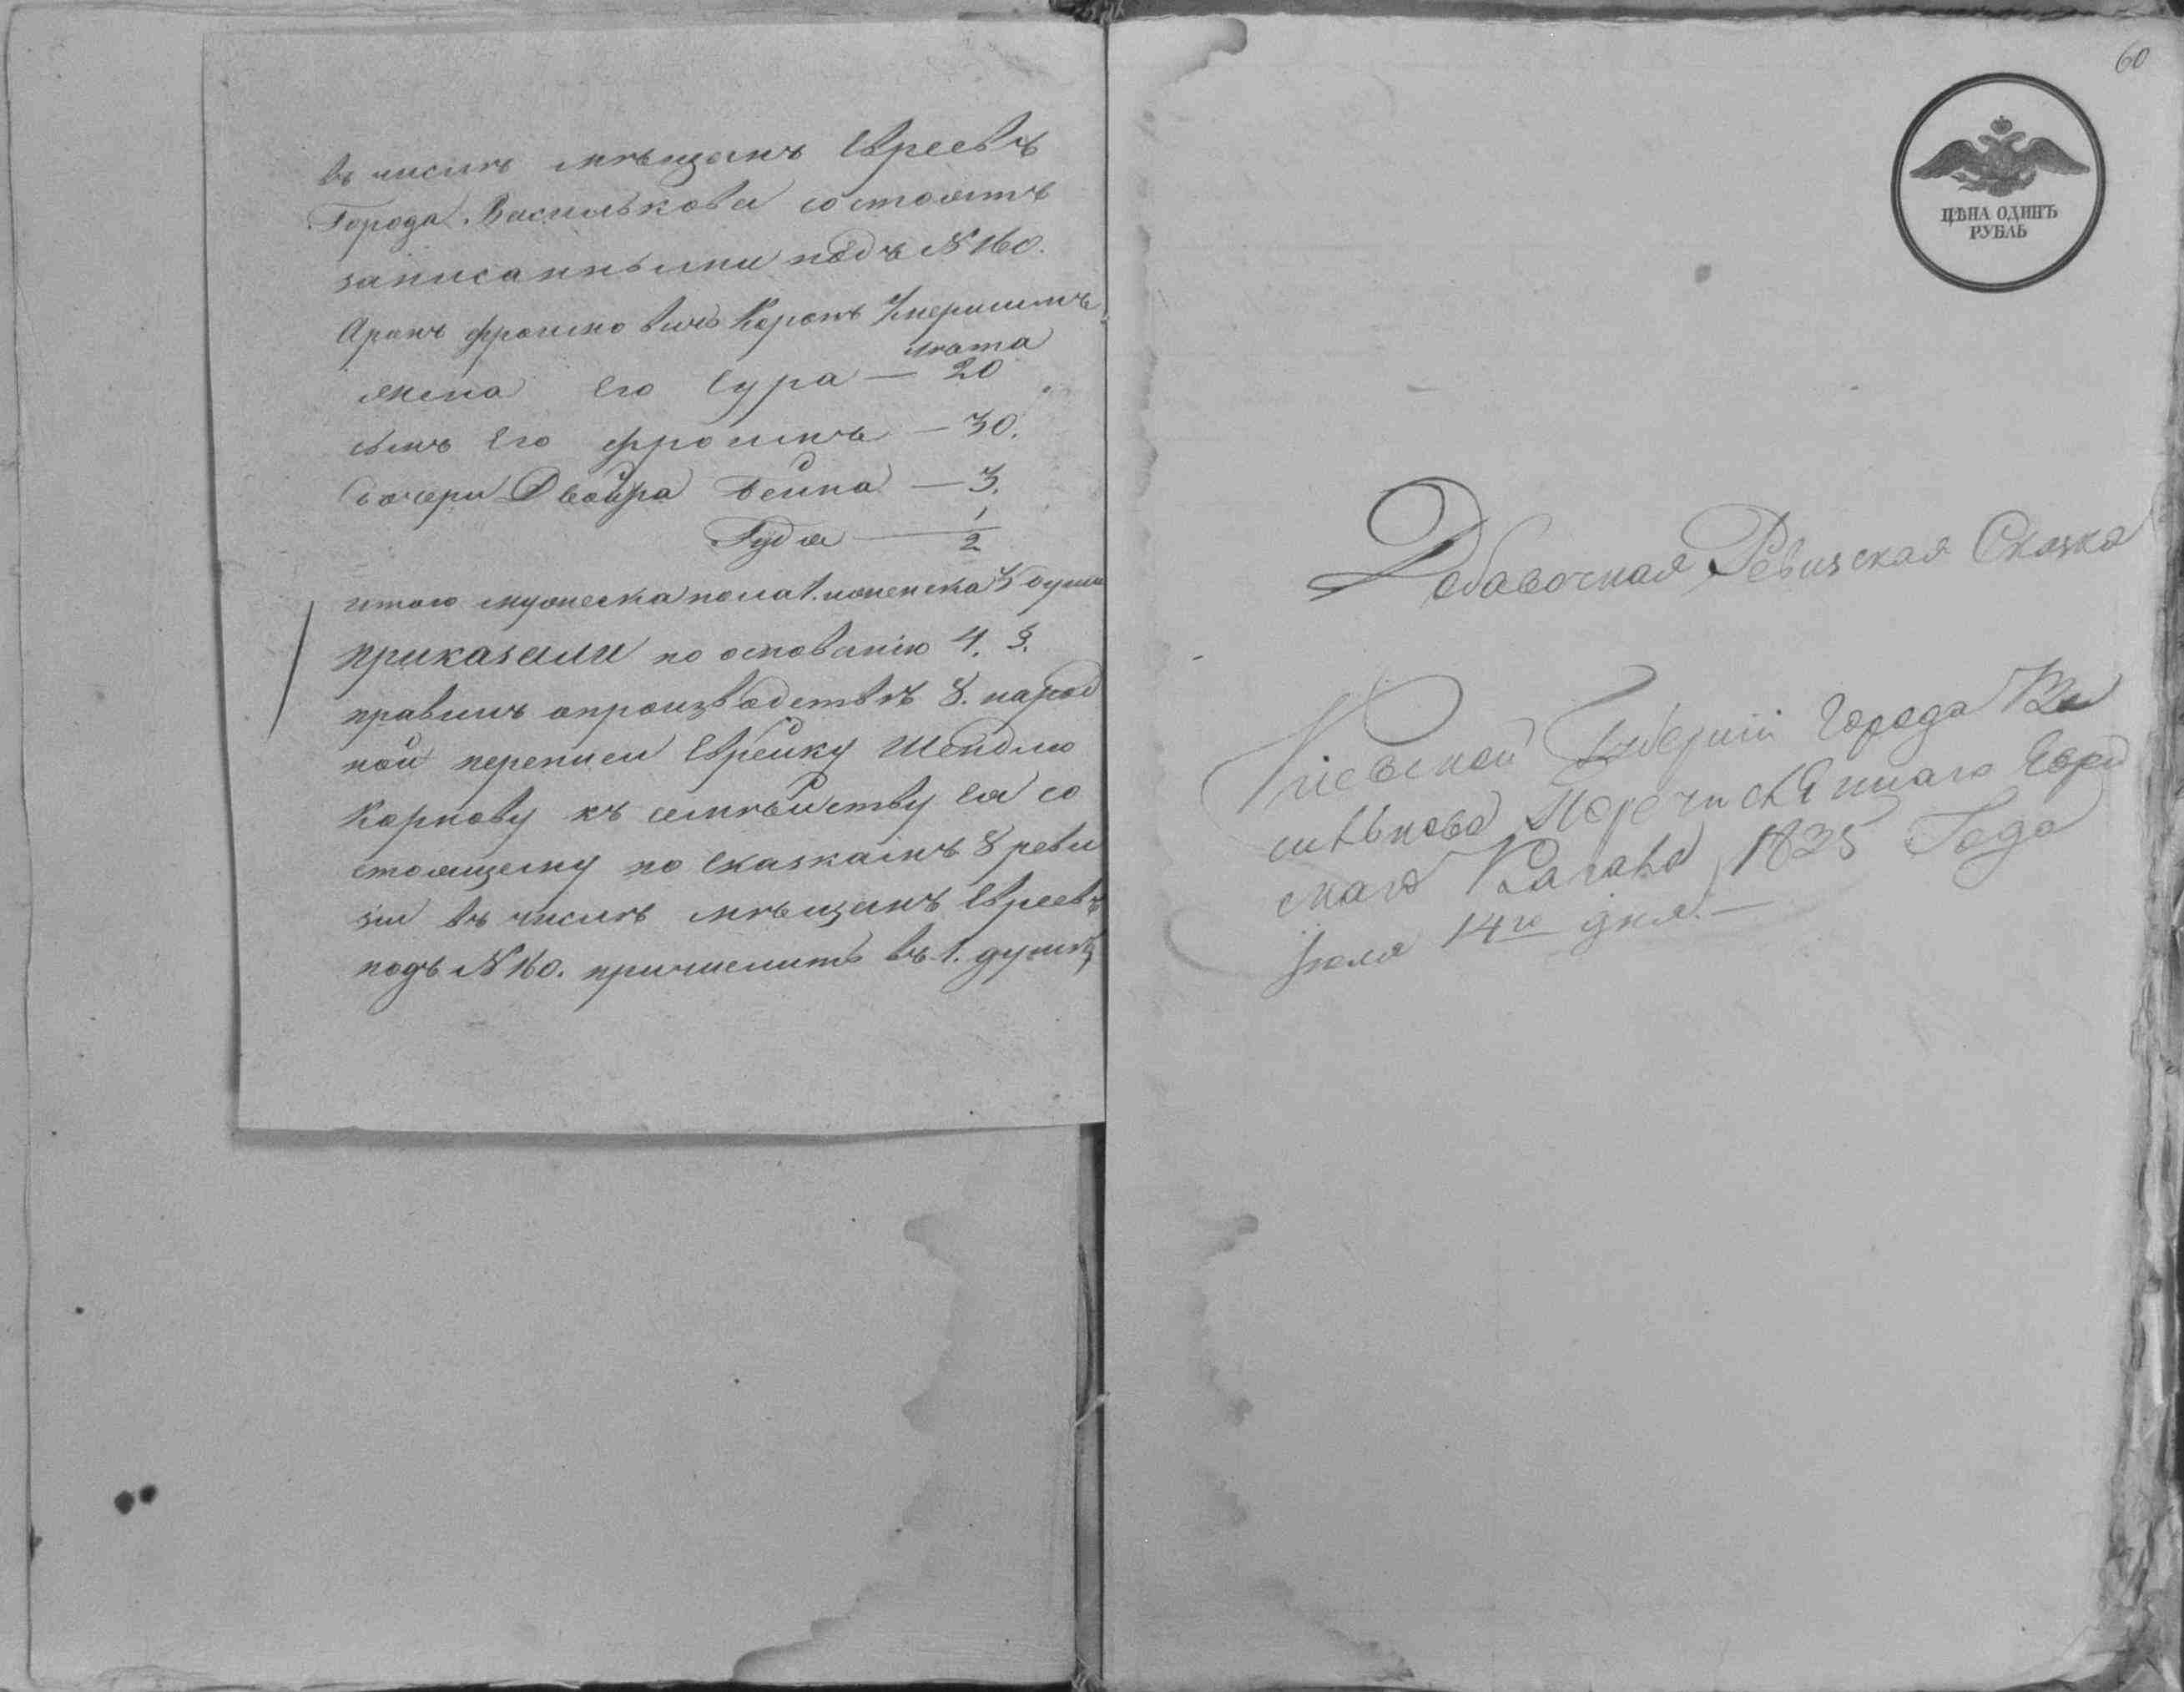 въ числѣ мѣщанъ Евреевъ
Города Василькова состоятъ
записанными подъ № 160.
Аронъ Фроимовичъ Коронъ Умершимъ
лѣта
жена Его Сура — 20
сынъ Его Фроимъ — 30.
дочери Двойра Бейна — 3.
Гудя — 1/2
итого мужеска пола 1. женска 3 души
приказали по основанію 4. §.
правилъ опроизводствѣ 8. народ
ной переписи Еврейку Шейдлю
Корнову къ семѣйству Ея со
стоящему по сказкамъ 8 реви
зіи въ числѣ мѣщанъ Евреевъ
подъ № 160. причислить въ 1. душѣ
60
ЦѢНА ОДИНЪ
РУБЛЬ
Добавочная Ревизская Сказка
Кіевской Губерніи Города Ва
силькова Перечисленнаго Еврей
скаго Кагала 1835 Года
Іюля 14го дня. —